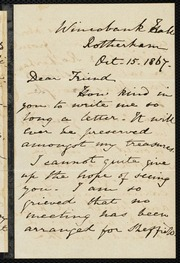 Wincobank Hall
Rotherham
Oct. 15. 1867.
Dear Friend
How kind in
you to write me so
long a letter. It will
ever be preserved
amongst my treasures.
I cannot quite give
up the hope of seeing
you. I am so
grieved that no
meeting has been
arranged for Sheffield